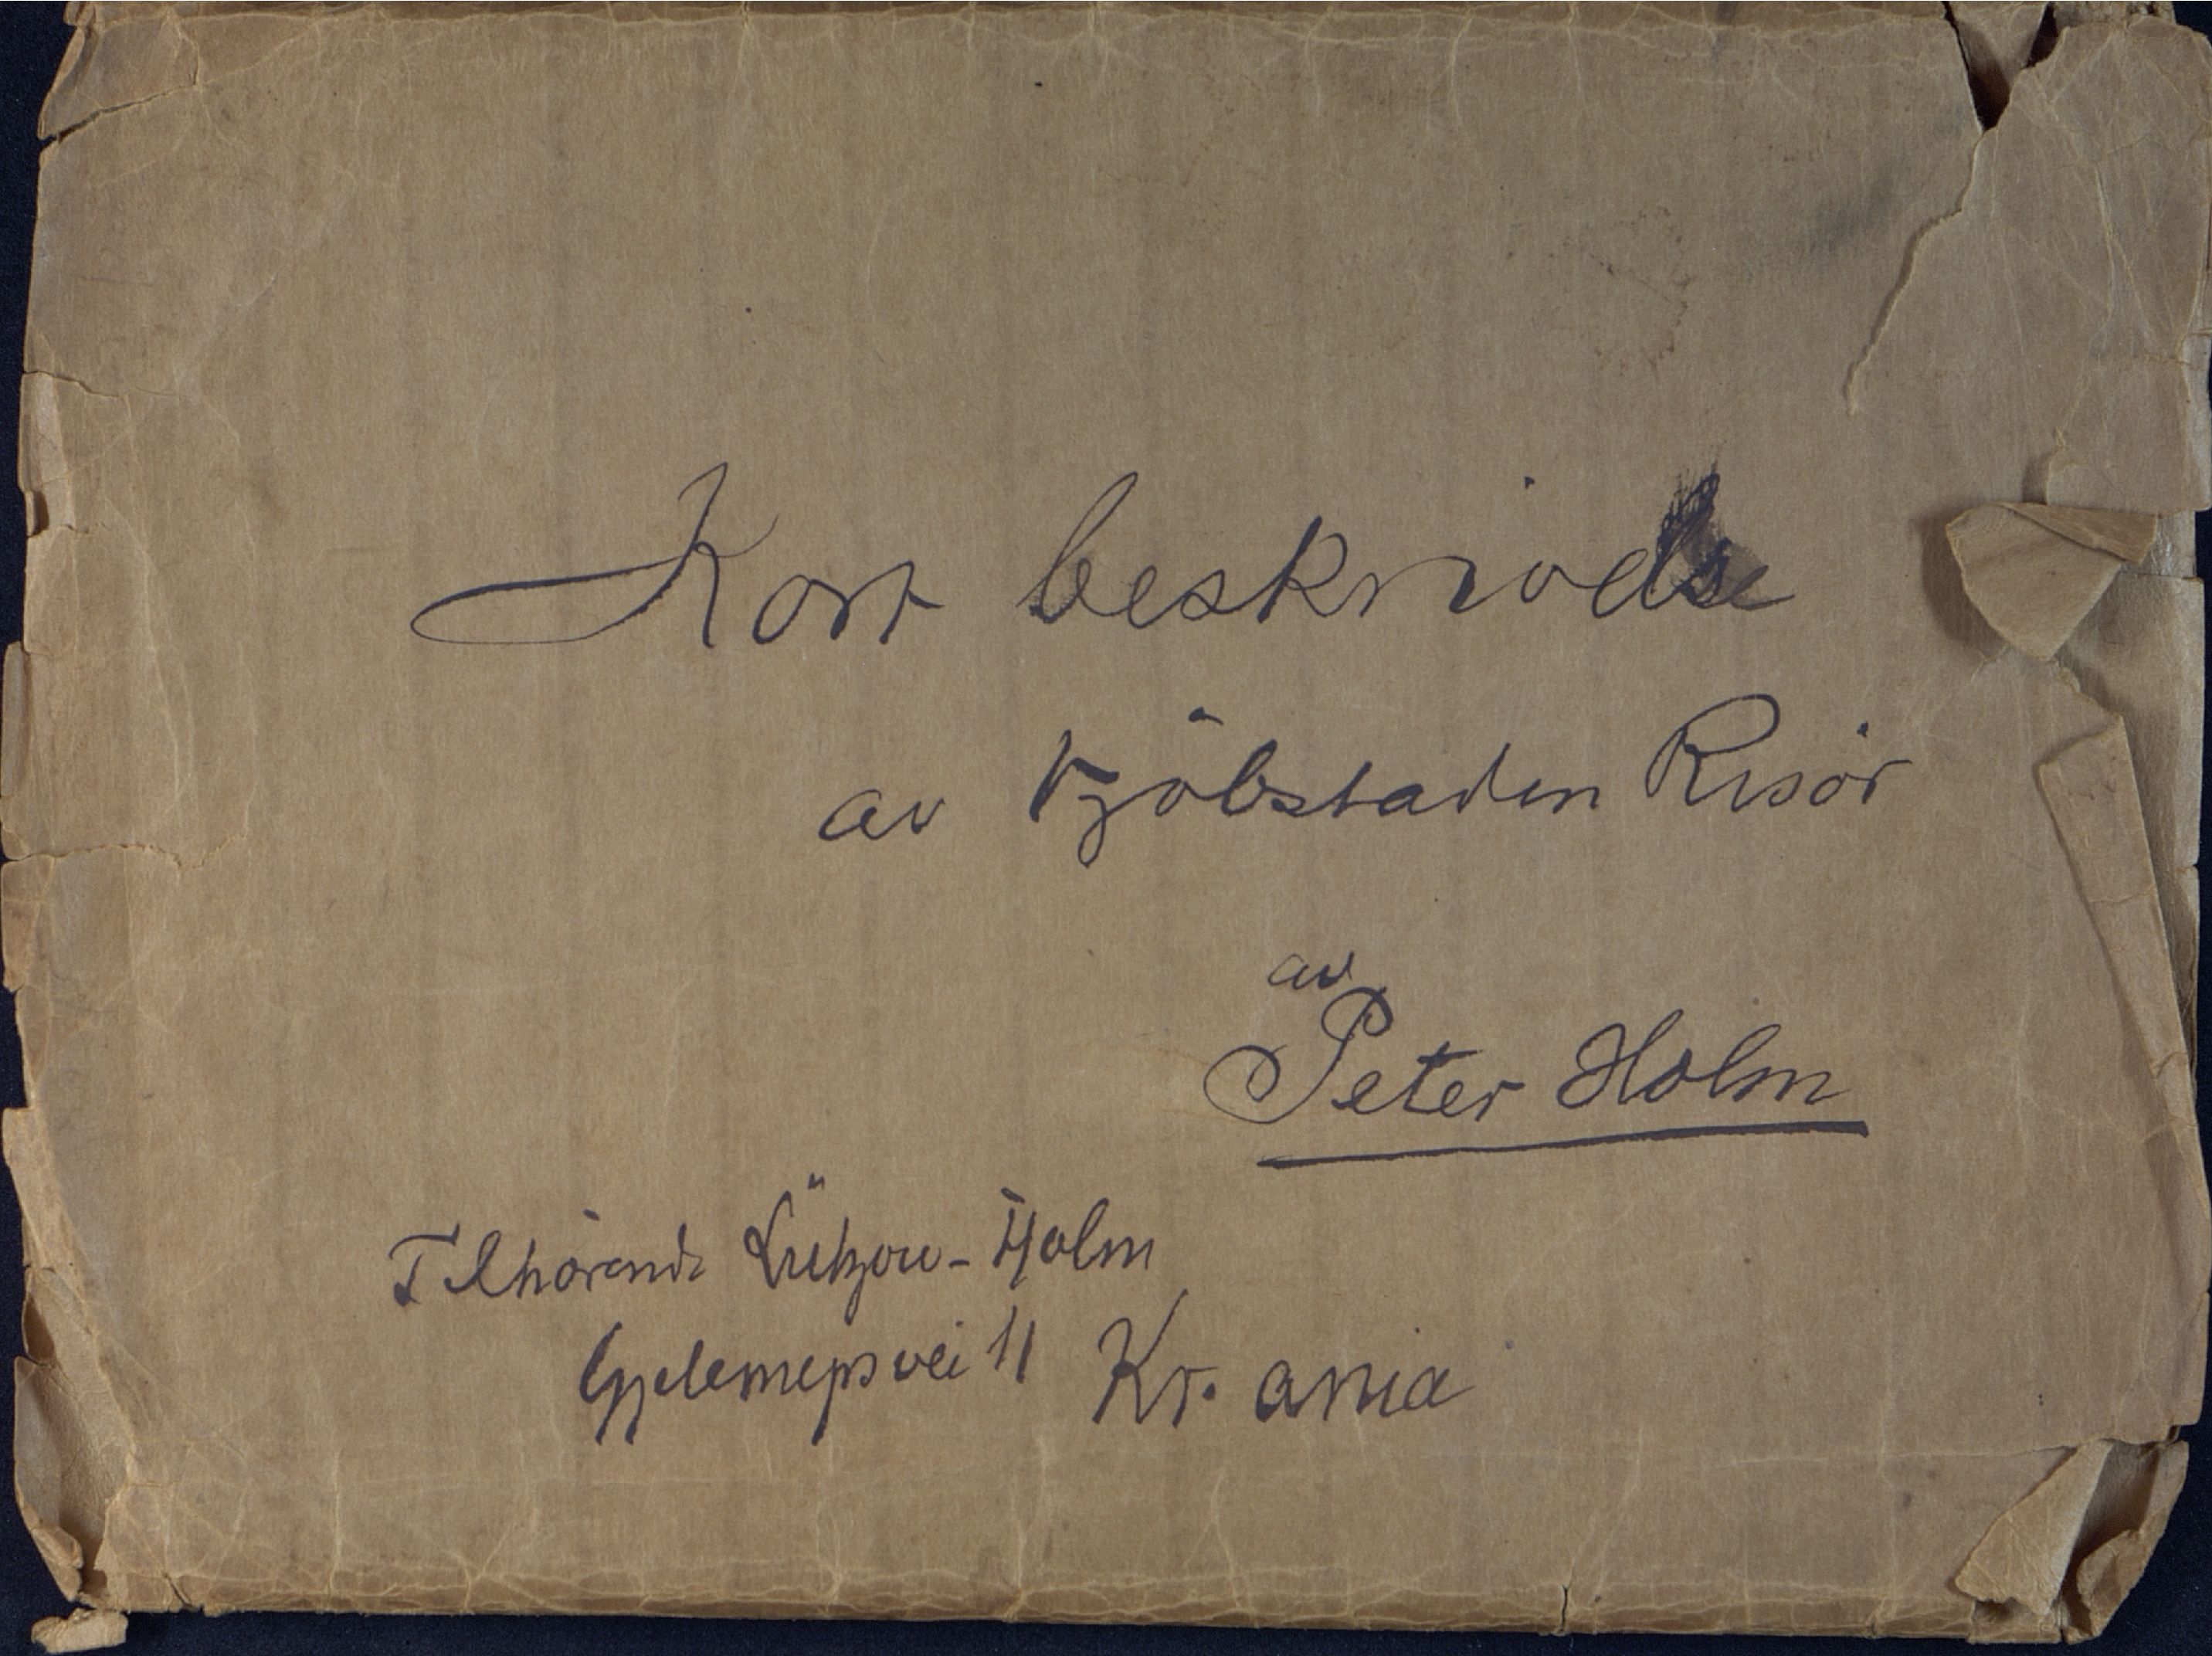 Kort beskrivelse
av Kjöbstaden Risör
av
Peter Holm
Tilhörende Lützow-Holm
Gjelemeyrsvei 11 Kr. ania